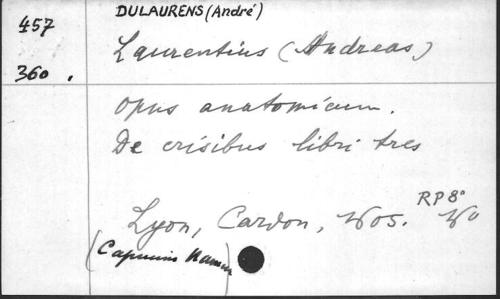 DULAURENS (André)
457
Laurentius (Andreas)
360.
Opus anatomicum.
De crisibus libri tres
RP 8°
Lyon, Cardon, 1605.
(Capucins